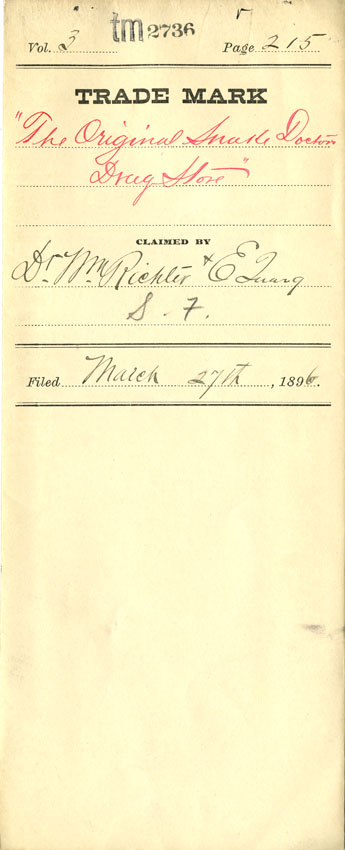 tm 2736
Vol. 3 Page 215
TRADE MARK
"The Original Snake Doctors
Drug Store"
CLAIMED BY
Dr. Wm Richter & E Quarg
S. F.
Filed March 27th, 1896.